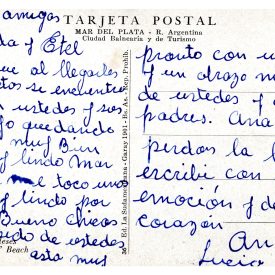 TARJETA POSTAL
MAR DEL PLATA - R. Argentina
Ciudad Balnearia y de Turismo
amigas
da y Etel
ue al llegarles
tos se encuentre
ustedes y sea
jo quedando
muy Bien
y lindo mar
me toco uno
y lindo por
Bueno Chicas
pido de ustedes
asta muy
eses
Beach
50 Ed. La Sudamericana - Garay 1941 - Bs. As. - Rep. Prohib.
pronto con u
y un abrazo m
de ustedes y
padres. Ana
perdon la l
escribi con
emoción y de
corazón
An
Lucia